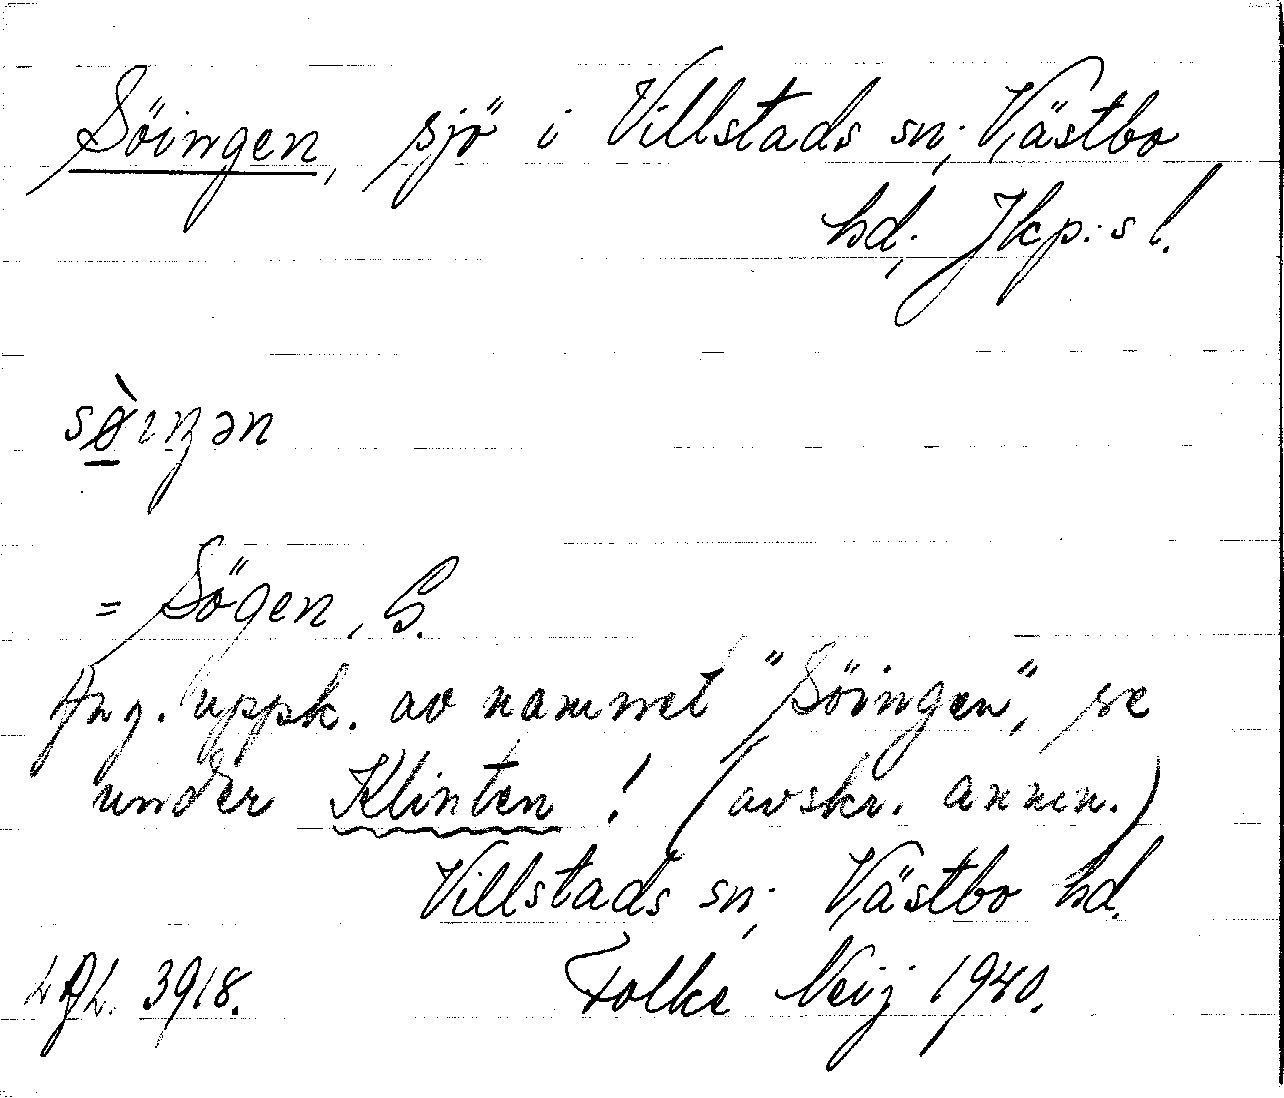 Söingen, sjö i Villstads sn; Västbo
hd; Jkp:s l.
sø̀ıŋən
= Sögen, G.
Ang. uppk. av namnet "Söingen", se
under Klinten! (avskr. anmn.)
Villstads sn; Västbo hd.
3918. Folke Neij 1940.